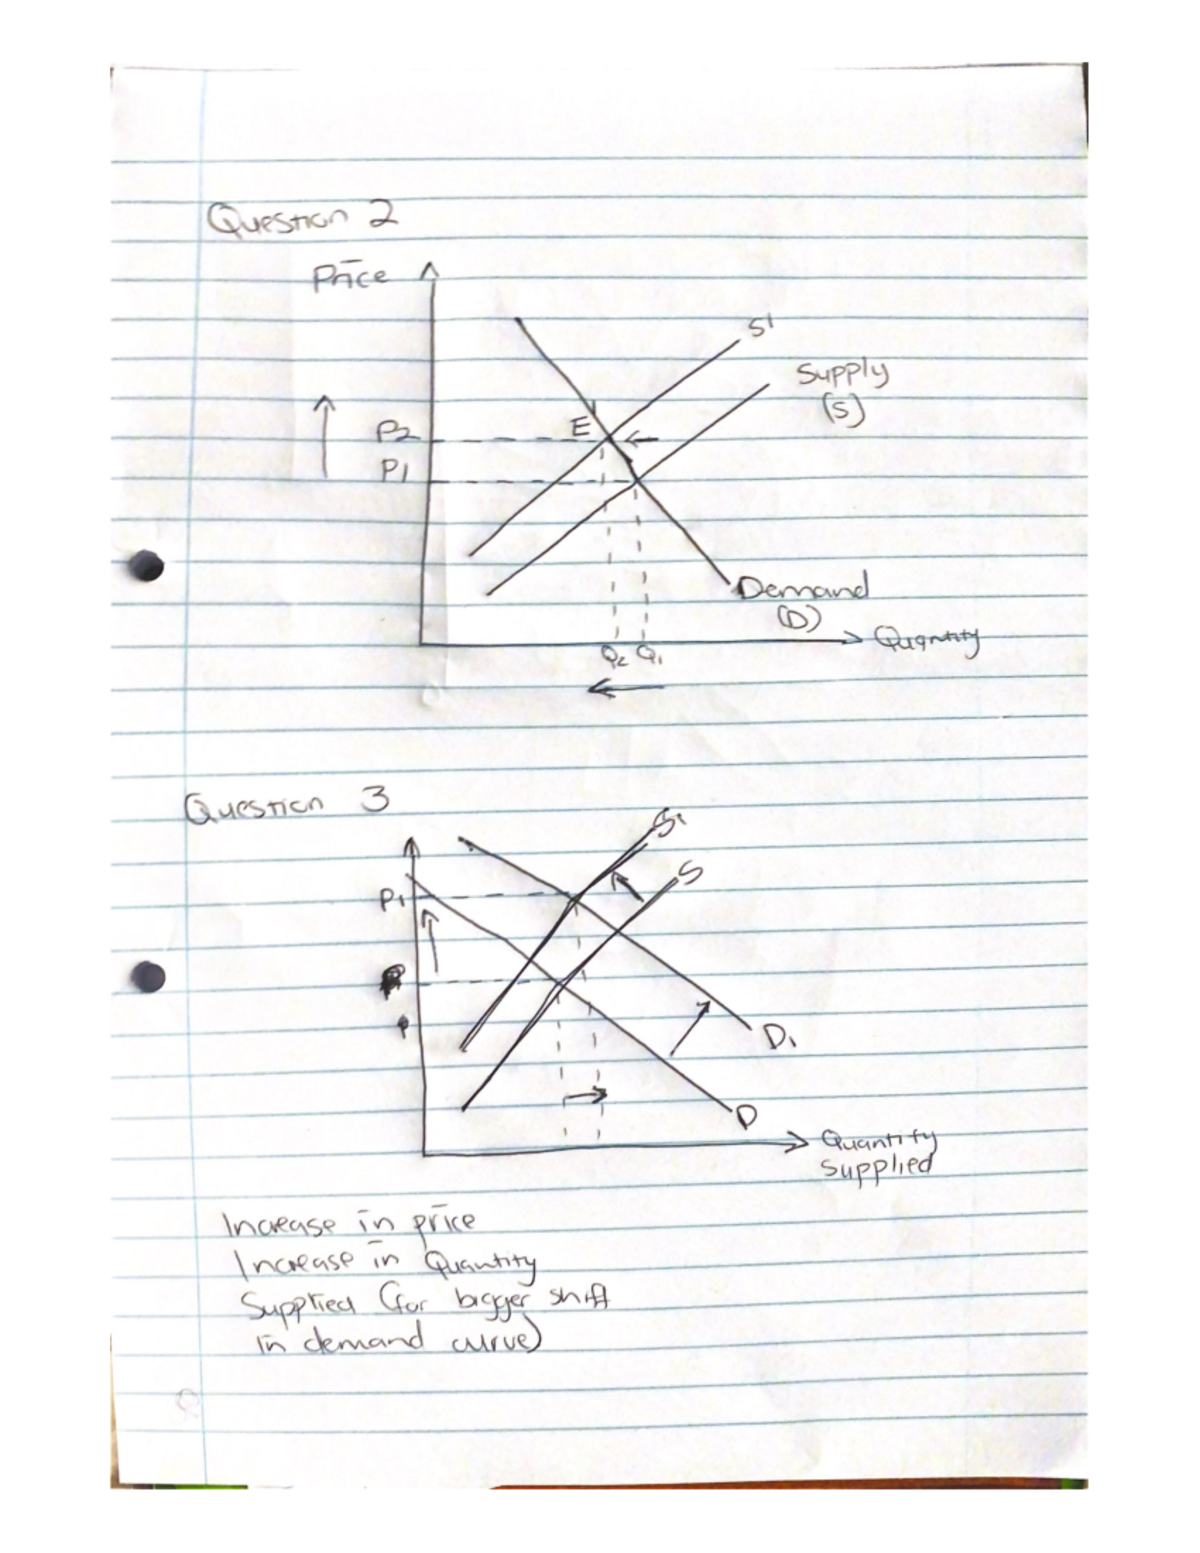 Question 2
Price
S'
Supply
(S)
E
P2
P1
Demand
(D)
Quantity
Q2 Q1
Question 3
S1
S
P1
P
D1
D
Quantity
Supplied
Increase in price
Increase in Quantity
Supplied (for bigger shift
in demand curve)